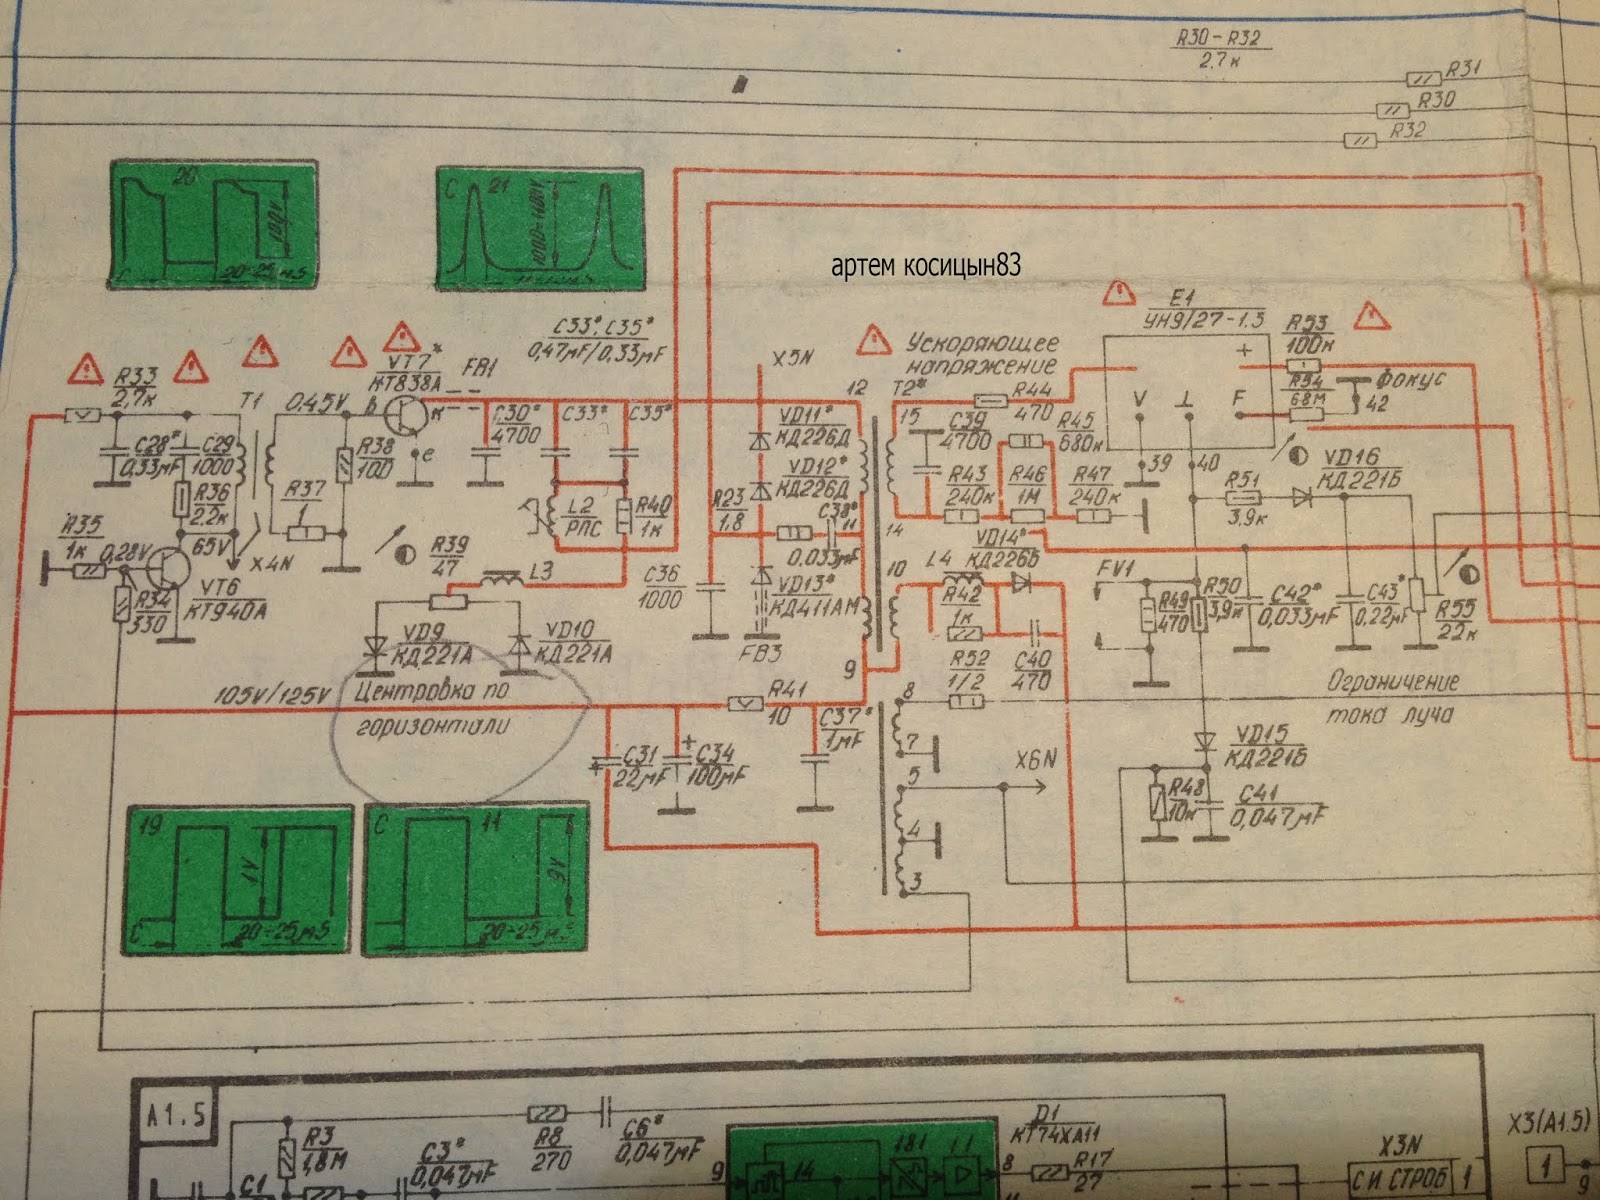 R30-R32
2.7к
R31
R30
R32
26
20-25мS
C 21
артем косицын83
C33*, C35*
0,47мF/0,33мF
X5N
Ускоряющее
напряжение
E1
УН9/27-1.3
R53
100к
R33
2,7к
VT7*
КТ838А
FB1
T1
0.45V
в
к
е
C28*
0,33мF
C29
1000
R36
2.2к
R37
1
R38
100
C30*
4700
C33*
C35*
L2
РЛС
R40
1к
12
T2*
15
VD11*
КД226Д
VD12*
КД226Д
R23
1.8
C38*
11
0.033мF
VD13*
КД411АМ
FB3
C36
1000
R44
470
C39
4700
R45
680к
R43
240к
R46
1М
R47
240к
14
VD14*
КД226Б
10
L4
R42
1к
C40
470
R52
1/2
9
+
V
⊥
F
39
40
R54
68М
Фокус
42
R51
3,9к
VD16
КД221Б
FV1
R49
470
R50
3,9к
C42*
0,033мF
C43*
0,22мF
R55
22к
Ограничение
тока луча
R35
1к
0,28V
R34
330
VT6
КТ940А
65V
X4N
R39
47
L3
VD9
КД221А
VD10
КД221А
105V/125V
Центровка по
горизонтали
R41
10
C31
22мF
+
C34
100мF
C37*
1мF
8
7
5
4
3
X6N
VD15
КД221Б
R48
10к
C41
0,047мF
19
1V
C
20-25мS
C 11
9V
20-25мS
A1.5
R3
1,8М
C1
C3*
0,047мF
R8
270
C6*
0,047мF
D1
КТ74ХА11
9
14
181
1.1
8
R17
27
X3N
СИ СТРОБ 1
X3(A1.5)
1
9